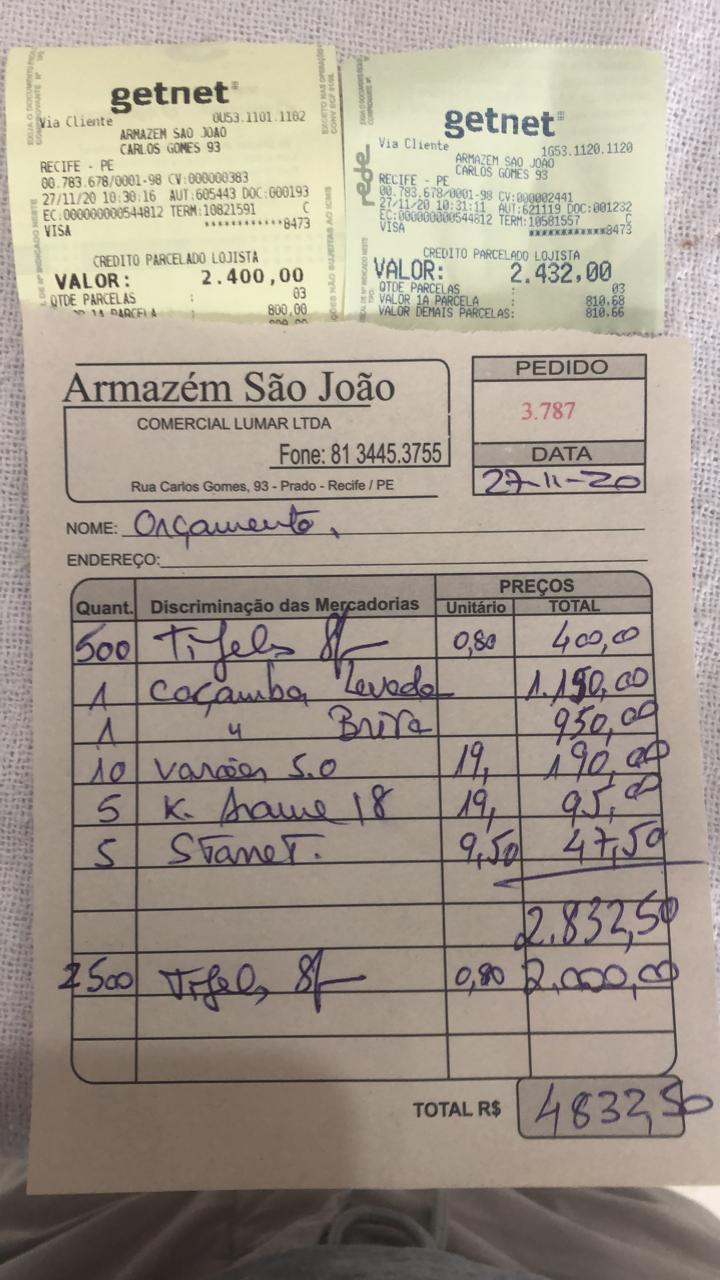 getnet
Via Cliente 0U53.1101.1102
ARMAZEM SAO JOAO
CARLOS GOMES 93
RECIFE - PE
00.783.678/0001-98 CV:000000383
27/11/20 10:30:16 AUT:605443 DOC:000193
EC:000000000544812 TERM:10821591 C
VISA ************8473
CREDITO PARCELADO LOJISTA
VALOR: 2.400,00
QTDE PARCELAS : 03
1A PARCELA 800,00
getnet
rede
Via Cliente 1G53.1120.1120
ARMAZEM SAO JOAO
CARLOS GOMES 93
RECIFE - PE
00.783.678/0001-98 CV:000002441
27/11/20 10:31:11 AUT:621119 DOC:001232
EC:000000000544812 TERM:10581557 C
VISA ************8473
CREDITO PARCELADO LOJISTA
VALOR: 2.432,00
QTDE PARCELAS : 03
VALOR 1A PARCELA : 810.68
VALOR DEMAIS PARCELAS: 810.66
Armazém São João
COMERCIAL LUMAR LTDA
Fone: 81 3445.3755
Rua Carlos Gomes, 93 - Prado - Recife / PE
PEDIDO
3.787
DATA
27-11-20
NOME: Orçamento.
ENDEREÇO:
Quant. Discriminação das Mercadorias PREÇOS
Unitário TOTAL
500 Tijelo 8f 0,80 400,00
1 Caçamba Lavada 1.150,00
1 " Brita 950,00
10 Varões 5.0 19, 190,00
5 K. Arame 18 19, 95,00
5 STaneT. 9,50 47,50
2.832,50
2500 Tijelo 8f 0,80 2.000,00
TOTAL R$ 4832,50